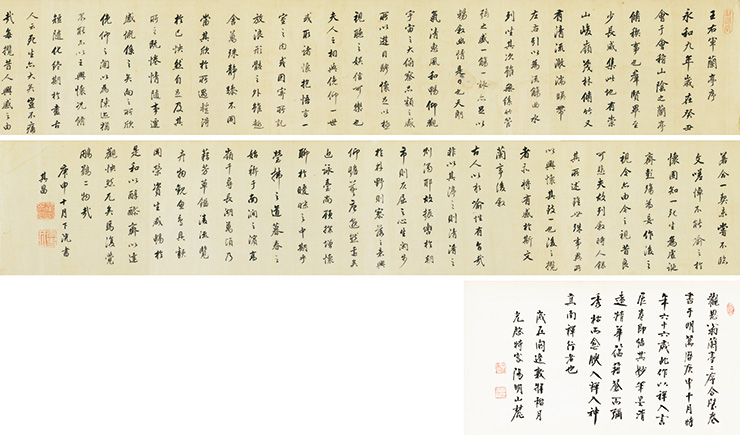 王右軍蘭亭序
永和九年歲在癸丑
會于會稽山陰之蘭亭
脩稧事也羣賢畢至
少長咸集此地有崇
山峻嶺茂林脩竹又
有清流激湍暎帶
左右引以為流觴曲水
列坐其次雖無絲竹管
弦之盛一觴一詠亦足以
暢敘幽情是日也天朗
氣清惠風和暢仰觀
宇宙之大俯察品類之盛
所以遊目騁懷足以極
視聽之娛信可樂也
夫人之相與俯仰一世
或取諸懷抱悟言一
室之內或因寄所託
放浪形骸之外雖趣
舍萬殊靜躁不同
當其欣於所遇暫得
於己怏然自足及其
所之既惓情隨事遷
感慨係之矣向之所欣
俛仰之間以為陳迹猶
不能不以之興懷況脩
短隨化終期於盡古
人云死生亦大矣豈不痛
哉每攬昔人興感之由
若合一契未嘗不臨
文嗟悼不能喻之於
懷固知一死生為虛誕
齊彭殤為妄作後之
視今亦由今之視昔良
可悲夫故列敘時人錄
其所述雖世殊事異所
以興懷其致一也後之攬
者亦將有感於斯文
蘭亭後敘
古人以水喻性有旨哉
非以其渟之則清淆之
則濁耶故振轡於朝
市則充屈之心生閑步
於林野則寥落之志興
仰瞻羲唐邈然遠矣
近詠臺閣顧探增懷
聊於曖昧之中期乎
瑩拂之道暮春之
始禊于南澗之濱高
嶺千尋長湖萬頃乃
藉芳草鑑清流覽
卉物觀魚鳥具類
同榮資生咸暢於
是和以醇醪齊以達
觀怏然兀矣焉復覺
鵬鷃二物哉
庚申十月下浣書
其昌
觀思翁蘭亭二序合璧卷
書于明萬曆庚申十月時
年六十六歲此作以禪入書
入禪入神
真南禪行者也
陽明山麓